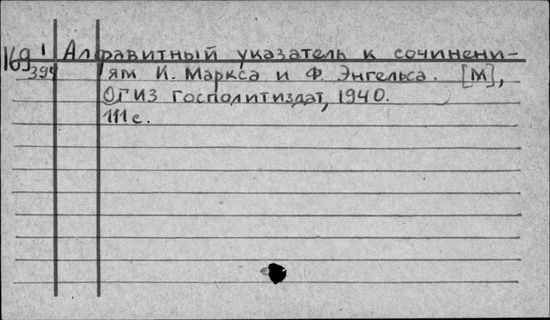 169 1 Алфавитный указатель к сочинени-
394 ям К. Маркса и Ф. Энгельса. [М],
ОГИЗ Госполитиздат, 1940.
111 с.